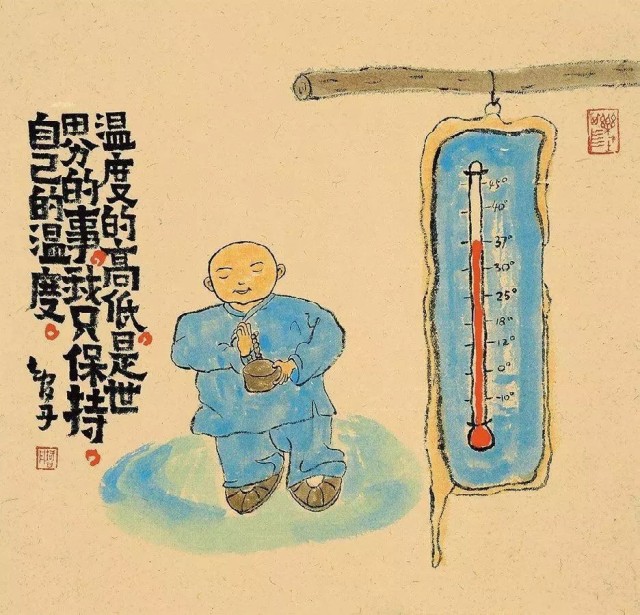 温度的高低是世
界的事我只保持
自己的温度
45°
40°
37°
30°
25°
18°
12°
0°
-10°